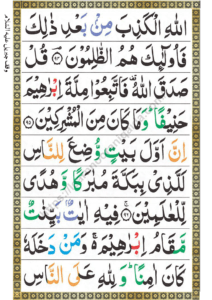 اللهِ الْكَذِبَ مِنْۢ بَعْدِ ذٰلِكَ
فَاُولٰٓئِكَ هُمُ الظّٰلِمُوْنَ ۝٩٤ قُلْ
صَدَقَ اللهُ فَاتَّبِعُوْا مِلَّةَ اِبْرٰهِيْمَ
حَنِيْفًا وَمَا كَانَ مِنَ الْمُشْرِكِيْنَ ۝٩٥
اِنَّ اَوَّلَ بَيْتٍ وُّضِعَ لِلنَّاسِ
لَلَّذِيْ بِبَكَّةَ مُبٰرَكًا وَّهُدًى
لِّلْعٰلَمِيْنَ ۝٩٦ فِيْهِ اٰيٰتٌۢ بَيِّنٰتٌ
مَّقَامُ اِبْرٰهِيْمَ ۚ وَمَنْ دَخَلَهٗ
كَانَ اٰمِنًا ؕ وَلِلّٰهِ عَلَى النَّاسِ